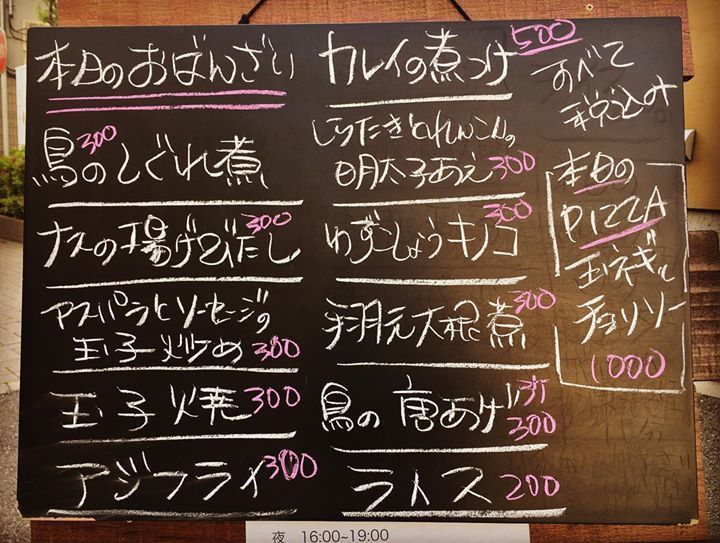 本日のおばんざい
鳥のしぐれ煮 300
ナスの揚げびだし 300
アスパラとソーセージの
玉子炒め 300
玉子焼 300
アジフライ 300
カレイの煮つけ 500
しらたきとれんこんの
明太子あえ 300
ゆずこしょうキノコ 300
手羽元大根煮 300
鳥の唐あげ
300
ラトス 200
すべて
税込み
本日の
PIZZA
玉ネギと
チョリソー
1000
夜 16:00~19:00